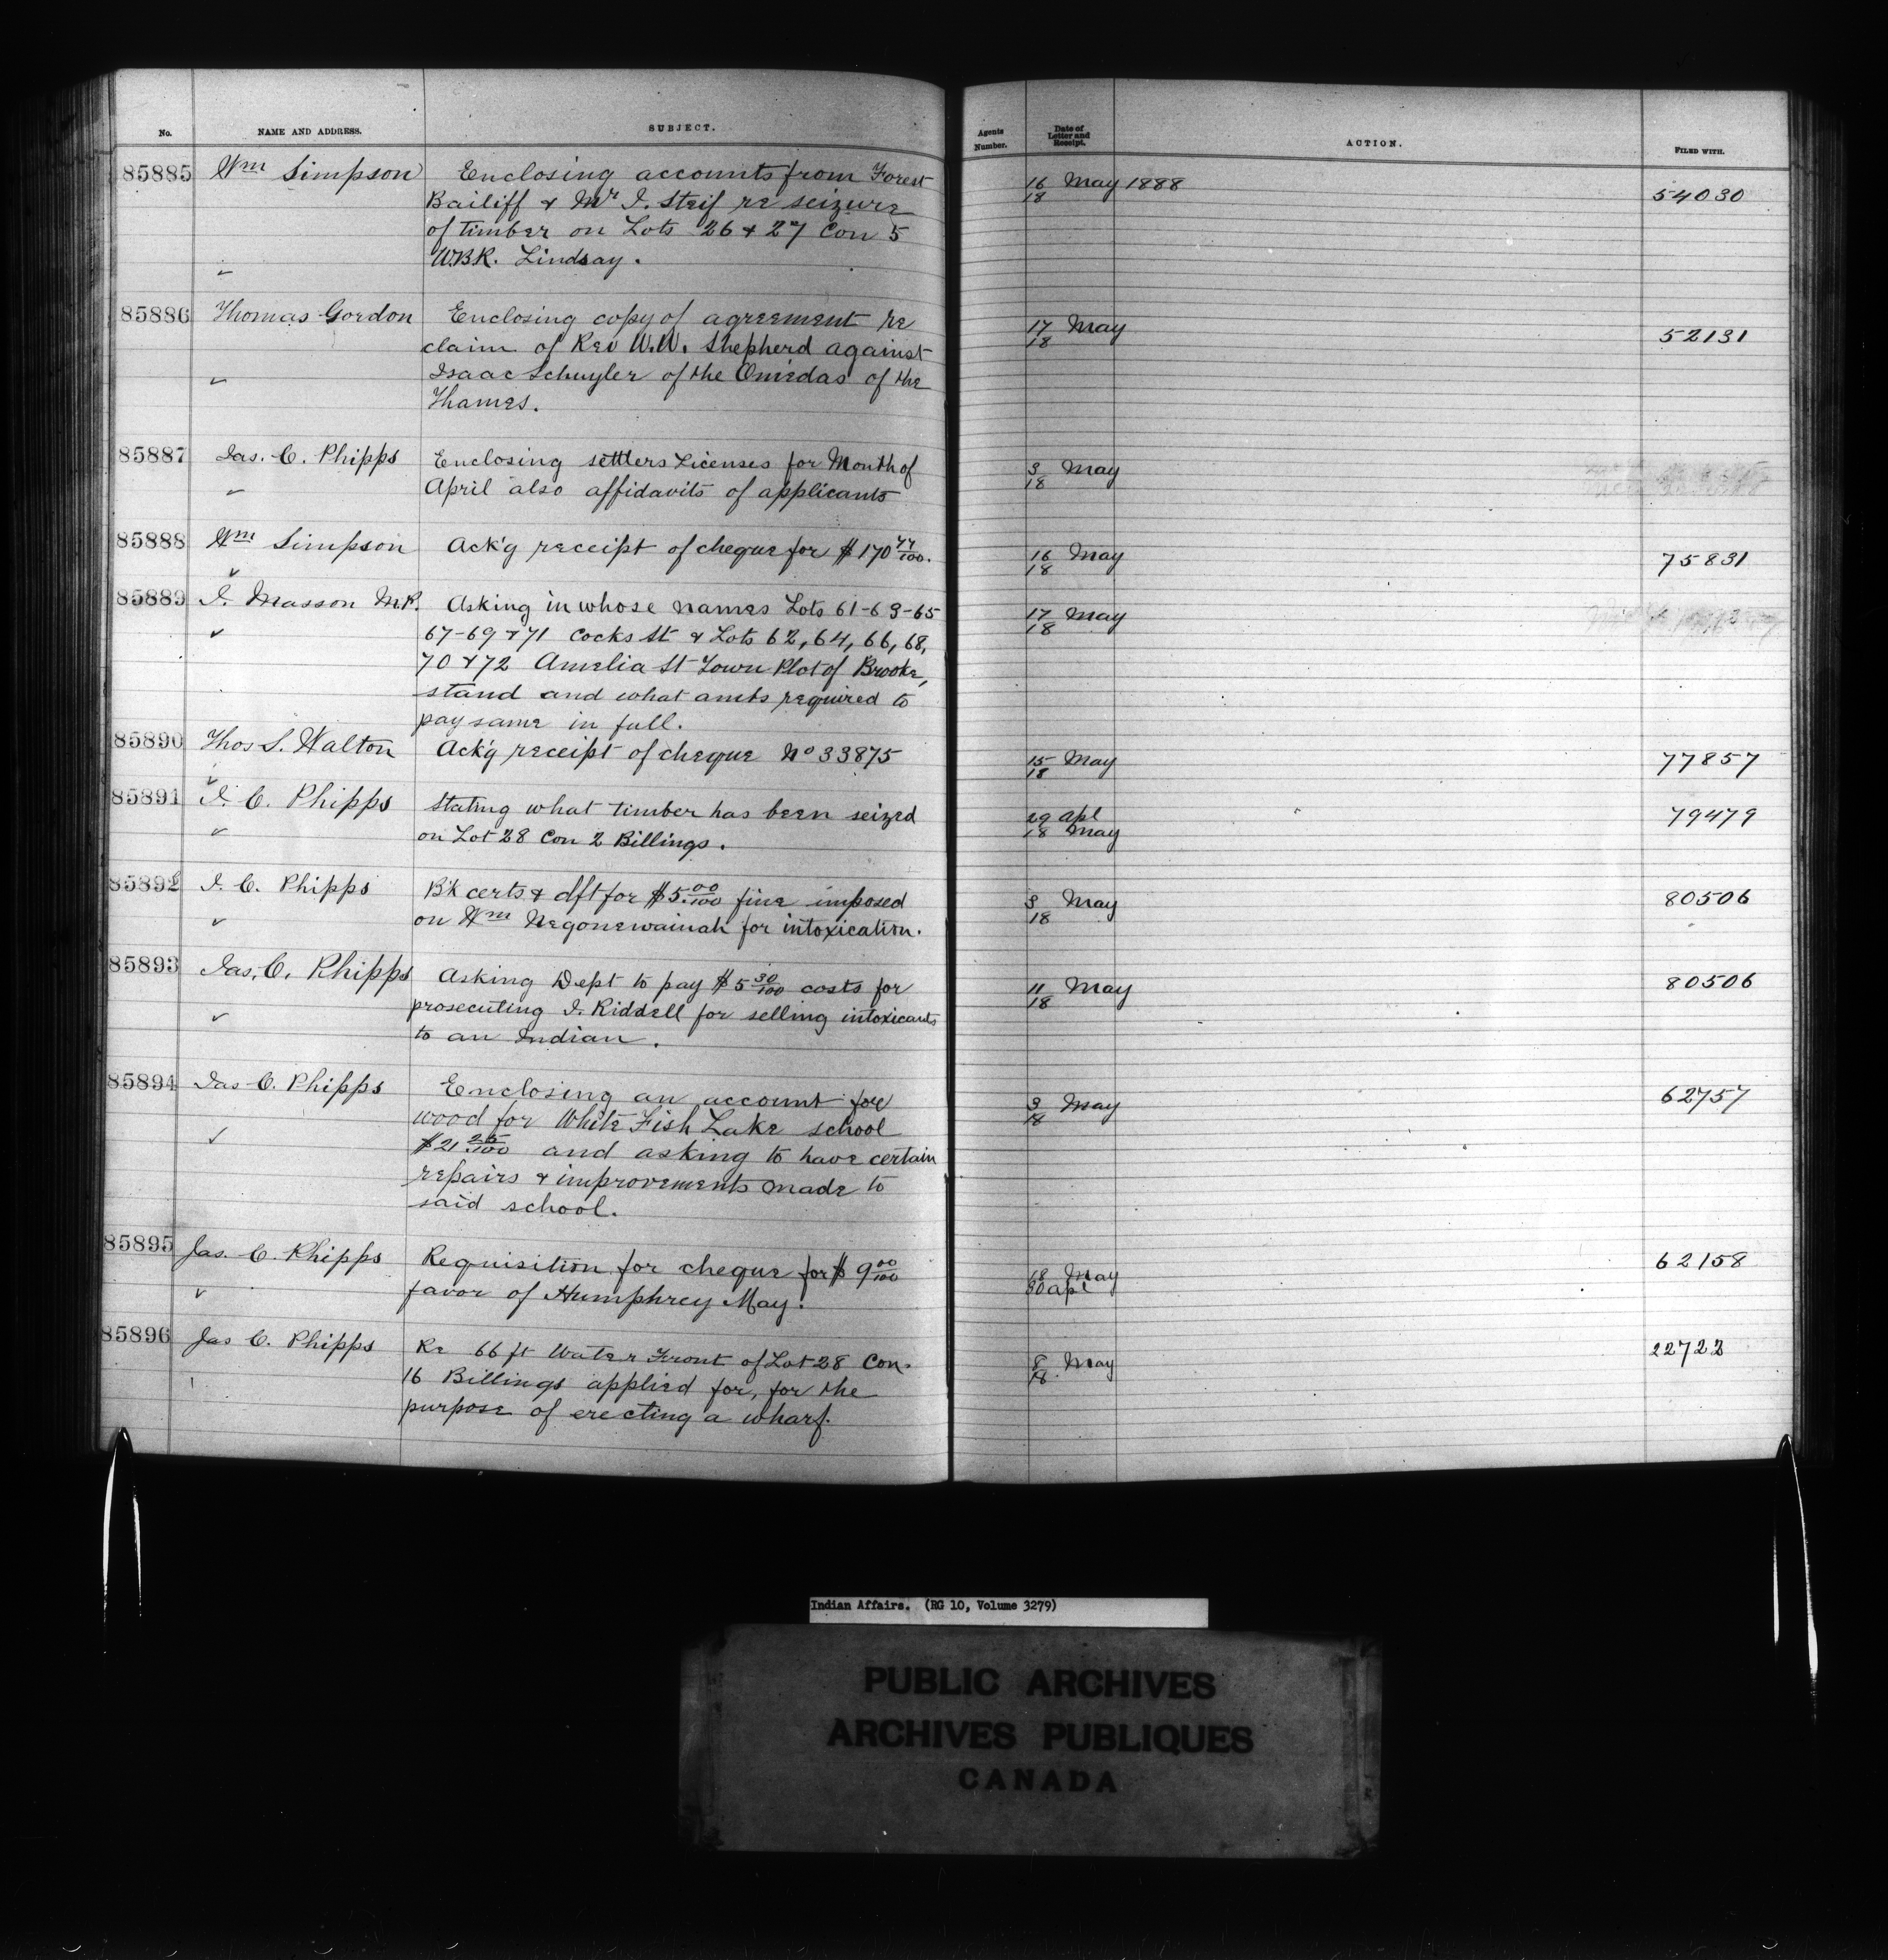 No. NAME AND ADDRESS. SUBJECT. Agents Number. Date of Letter and Receipt. ACTION. FILED WITH.
85885 Wm Simpson Enclosing accounts from Forest 16/18 May 1888 54030
Bailiff & Mr I. Steif re seizure
of timber on Lots 26 & 27 Con 5
W.B.R. Lindsay.
85886 Thomas Gordon Enclosing copy of agreement re 17/18 May 52131
claim of Rev W.W. Shepherd against
Isaac Schuyler of the Oniedas of the
Thames.
85887 Jas. C. Phipps Enclosing settlers Licenses for Month of 3/18 May
April also affidavits of applicants
85888 Wm Simpson Ack'g receipt of cheque for $170 77/100. 16/18 May 75831
85889 J. Masson M.P. Asking in whose names Lots 61-63-65 17/18 May
67-69 & 71 Cocks St & Lots 62, 64, 66, 68,
70 & 72 Amelia St Town Plot of Brooke,
stand and what amts required to
pay same in full.
85890 Thos S. Walton Ack'g receipt of cheque No 33875 15/18 May 77857
85891 J. C. Phipps Stating what timber has been seized 29 apl 18 May 79479
on Lot 28 Con 2 Billings.
85892 J. C. Phipps B'k certs & dft for $5 00/100 fine imposed 3/18 May 80506
on Wm Negonewainah for intoxication.
85893 Jas. C. Phipps Asking Dept to pay $5 30/100 costs for 11/18 May 80506
prosecuting J. Riddell for selling intoxicants
to an Indian.
85894 Jas C. Phipps Enclosing an account for 3/18 May 62757
wood for White Fish Lake school
$21 25/100 and asking to have certain
repairs & improvements made to
said school.
85895 Jas. C. Phipps Requisition for cheque for $9 00/100 18 May 30 apl 62158
favor of Humphrey May.
85896 Jas C. Phipps Re 66 ft Water Front of Lot 28 Con. 8/18 May 22723
16 Billings applied for, for the
purpose of erecting a wharf.
Indian Affairs. (RG 10, Volume 3279)
PUBLIC ARCHIVES
ARCHIVES PUBLIQUES
CANADA